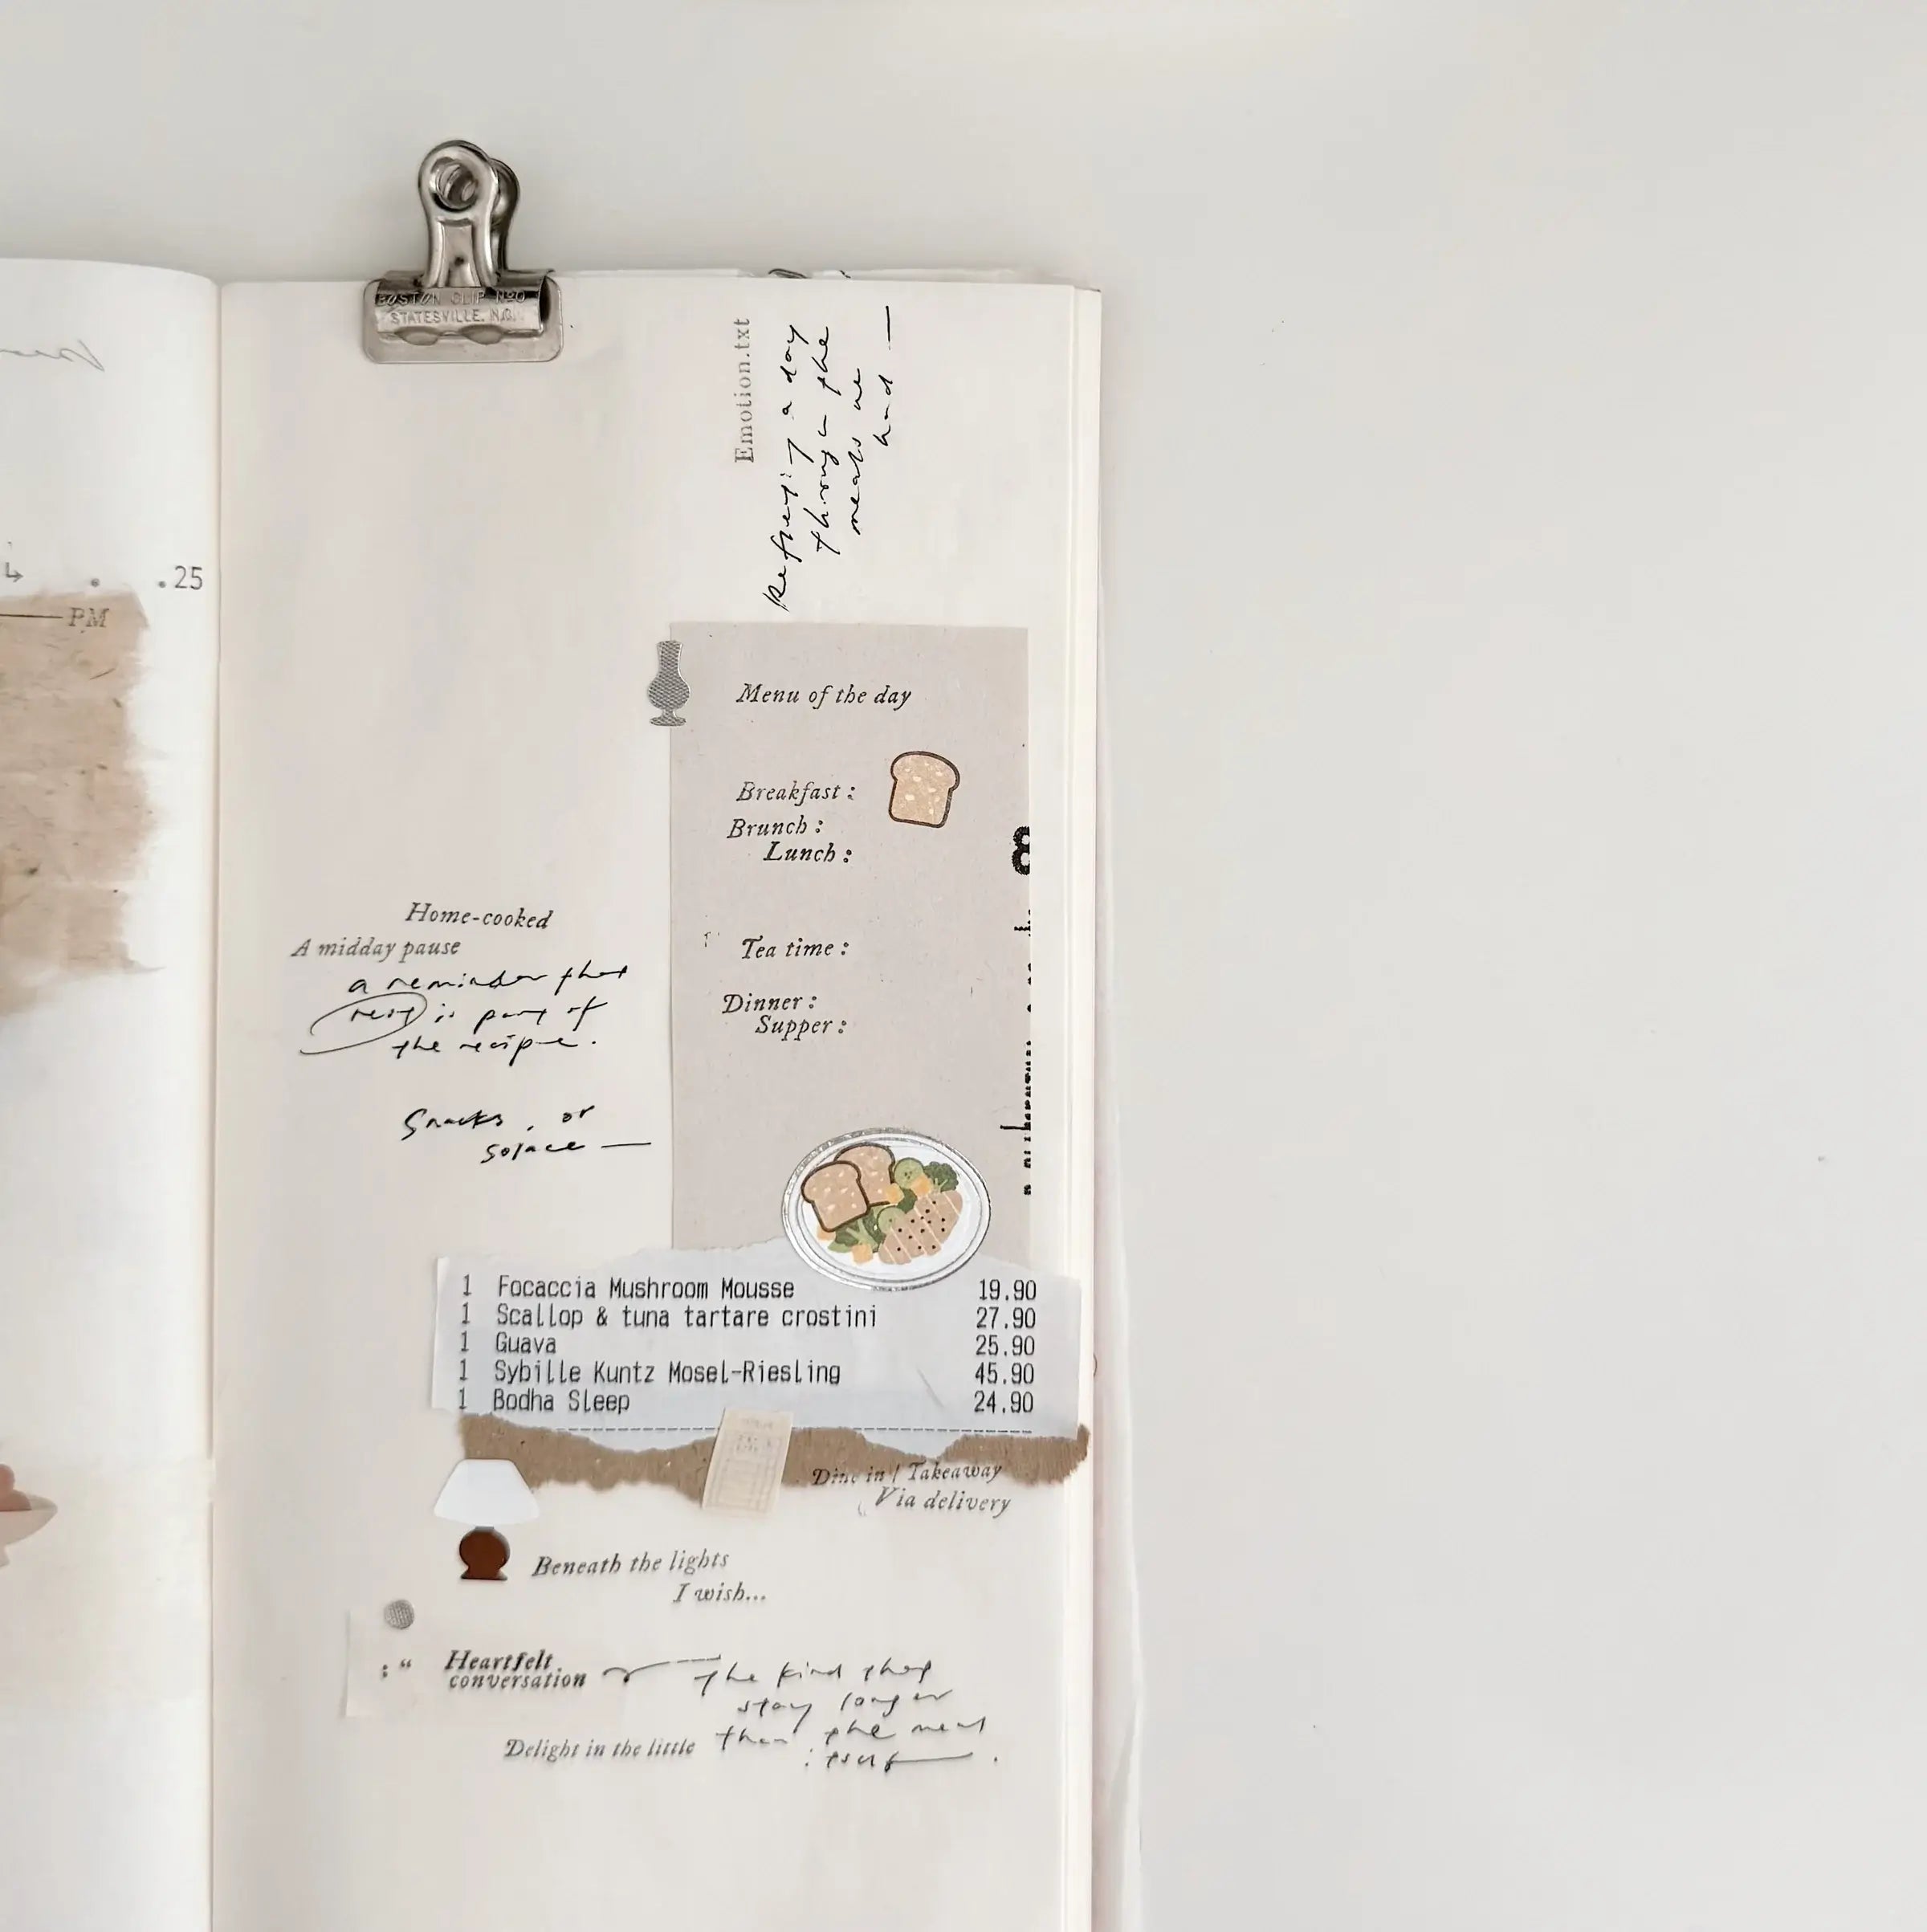 BOSTON CLIP Nº0
STATESVILLE. N.C.
.25
PM
Emotion.txt
Reflecting a day
through the
meals we
had —
Menu of the day
Breakfast :
Brunch :
Lunch :
Tea time :
Dinner :
Supper :
Home-cooked
A midday pause
a reminder that
rest is part of
the recipe.
Snacks, or
solace —
1 Focaccia Mushroom Mousse 19.90
1 Scallop & tuna tartare crostini 27.90
1 Guava 25.90
1 Sybille Kuntz Mosel-Riesling 45.90
1 Bodha Sleep 24.90
Dine in / Takeaway
Via delivery
Beneath the lights
I wish...
:“ Heartfelt
conversation
the kind that
stay longer
than the meal
itself.
Delight in the little